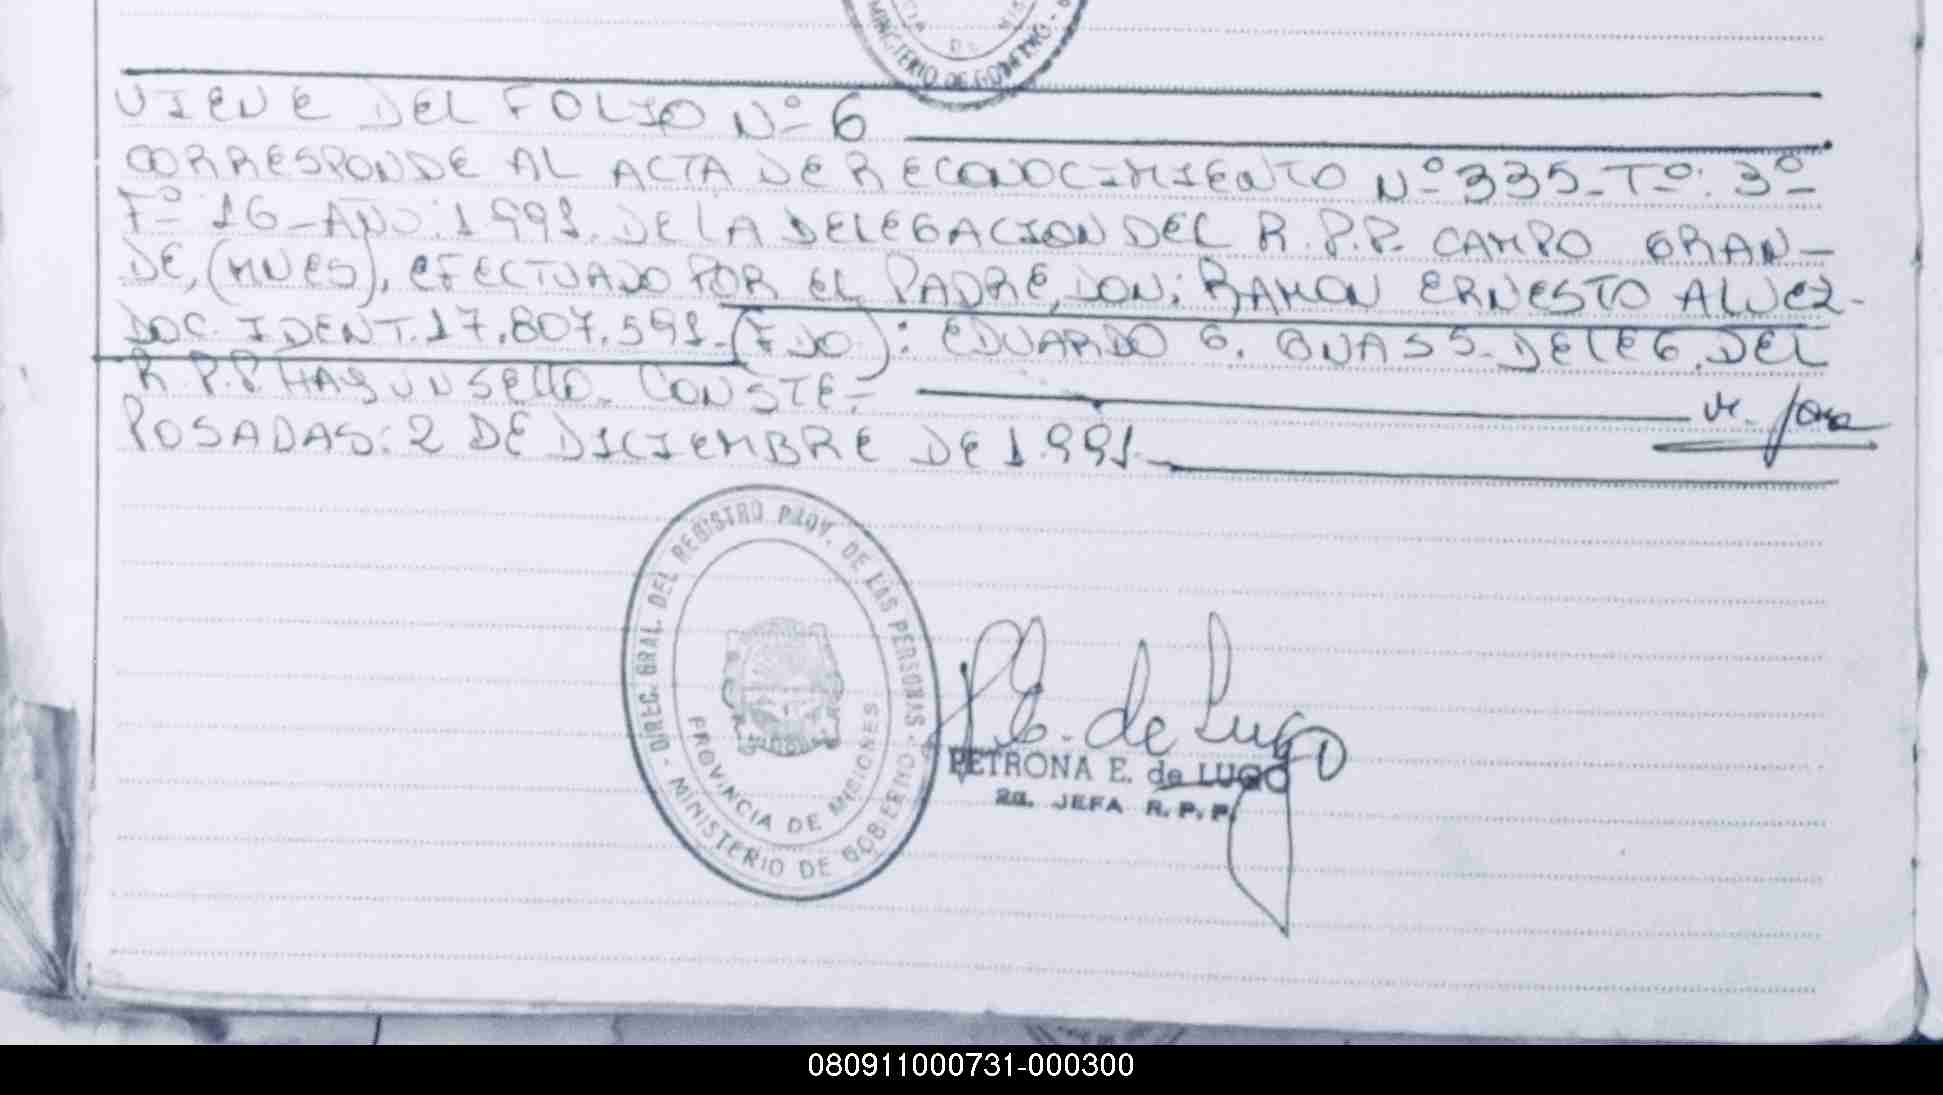 MINISTERIO DE GOBIERNO
VIENE DEL FOLIO Nº 6
CORRESPONDE AL ACTA DE RECONOCIMIENTO Nº 335-Tº: 3º-
Fº 16-AÑO: 1991. DE LA DELEGACION DEL R.P.P. CAMPO GRAN-
DE, (MNES), EFECTUADO POR EL PADRE, DON: RAMON ERNESTO
DOC. IDENT. 17.807.591-(FDO): EDUARDO G. DELEG. DEL
R.P.P. HAY UN SELLO. CONSTE.-
POSADAS: 2 DE DICIEMBRE DE 1.991.-
DIREC. GRAL. DEL REGISTRO PROV. DE LAS PERSONAS - MINISTERIO DE GOBIERNO -
PROVINCIA DE MISIONES
P.E. de Lugo
PETRONA E. de LUGO
2a. JEFA R.P.P.
080911000731-000300